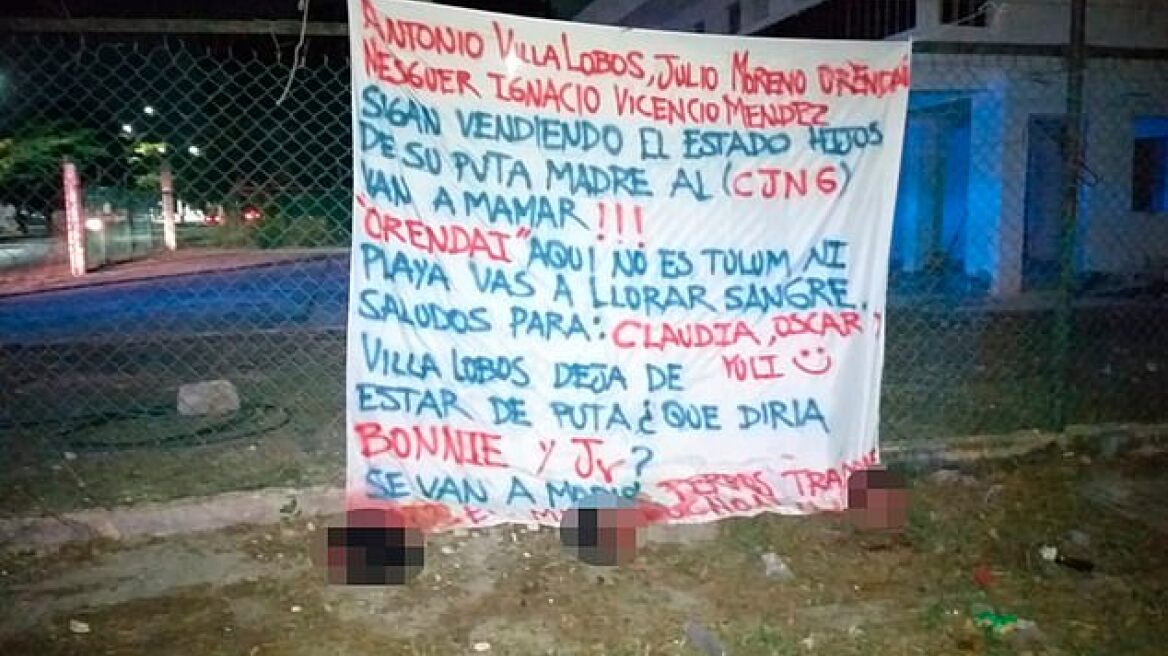 ANTONIO VILLALOBOS, JULIO MORENO ORENDAI
NESGUER IGNACIO VICENCIO MENDEZ
SIGAN VENDIENDO EL ESTADO HIJOS
DE SU PUTA MADRE AL (CJNG)
VAN A MAMAR !!!
"ORENDAI" AQUI NO ES TULUM NI
PLAYA VAS A LLORAR SANGRE.
SALUDOS PARA: CLAUDIA, OSCAR Y
VILLA LOBOS DEJA DE YULI
ESTAR DE PUTA ¿QUE DIRIA
BONNIE Y Jr?
SE VAN A